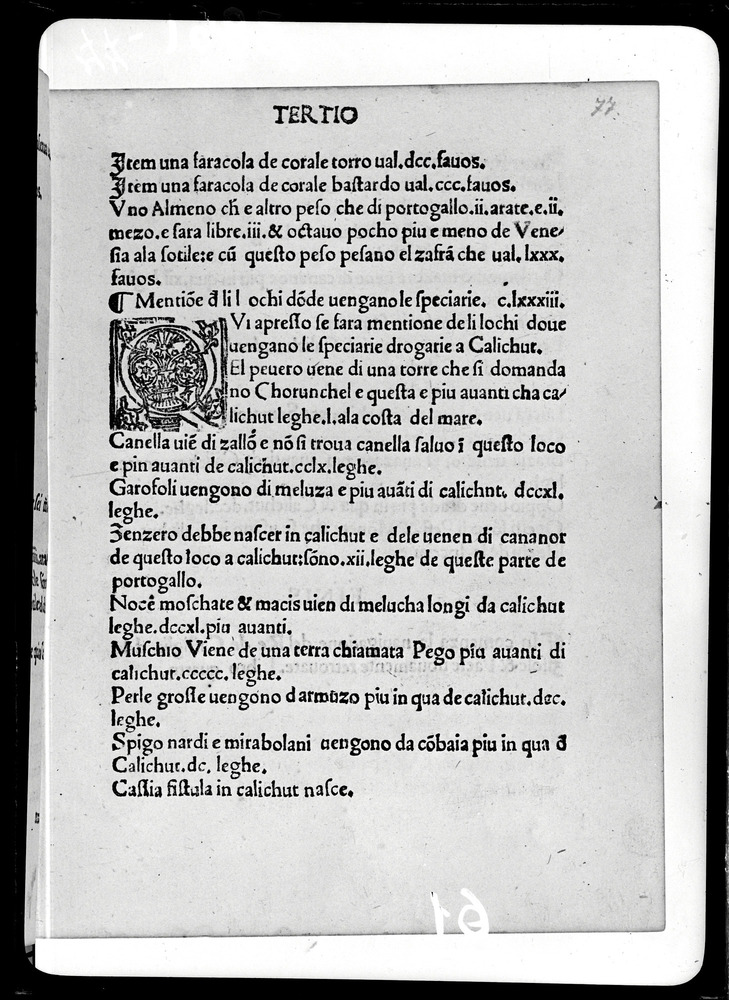 TERTIO
77.
Item una faracola de corale torro ual.dcc.fauos.
Item una faracola de corale bastardo ual.ccc.fauos.
Vno Almeno ch̄ e altro peso che di portogallo.ii.arate.e.ii.
mezo.e sara libre.iii.& octauo pocho piu e meno de Vene/
sia ala sotile:e cū questo peso pesano el zafrā che ual.lxxx.
fauos.
¶ Mentiōe đ li lochi dōde uengano le speciarie. c.lxxxiii.
QVi apresso se fara mentione de li lochi doue
uengano le speciarie drogarie a Calichut.
El peuero uene di una torre che si domanda
no Chorunchel e questa e piu auanti cha ca/
lichut leghe.l.ala costa del mare.
Canella uiē di zallō e nō si troua canella saluo ī questo loco
e pin auanti de calichut.cclx.leghe.
Garofoli uengono di meluza e piu auāti di calichnt. dccxl.
leghe.
Zenzero debbe nascer in çalichut e dele uenen di cananor
de questo loco a calichut:sōno.xii.leghe de queste parte de
portogallo.
Nocē moschate & macis uien di melucha longi da calichut
leghe.dccxl.piu auanti.
Muschio Viene de una terra chiamata Pego piu auanti di
calichut.ccccc.leghe.
Perle grosse uengono d armuzo piu in qua de calichut.dcc.
leghe.
Spigo nardi e mirabolani uengono da cōbaia piu in qua đ
Calichut.dc. leghe.
Cassia fistula in calichut nasce.
61